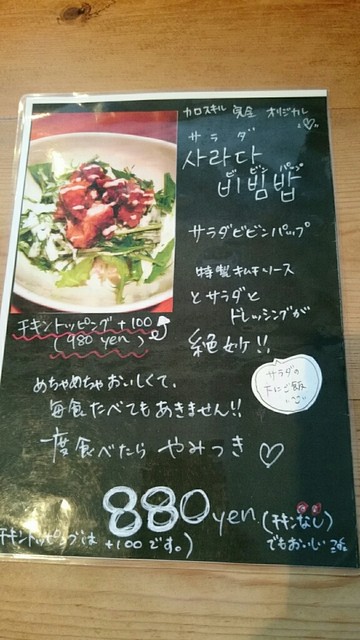 カロスキル 完全 オリジナル♡
サラダ
사라다
ビビンパップ
비빔밥
サラダビビンパップ
特製キムチソース
とサラダと
ドレッシングが
絶妙!!
チキントッピング+100
(980 yen)
サラダの
下にご飯
めちゃめちゃおいしくて、
毎食たべてもあきません!!
一度食べたら やみつき ♡
880yen(チキンなし)
でもおいしい
チキントッピングは +100です。)